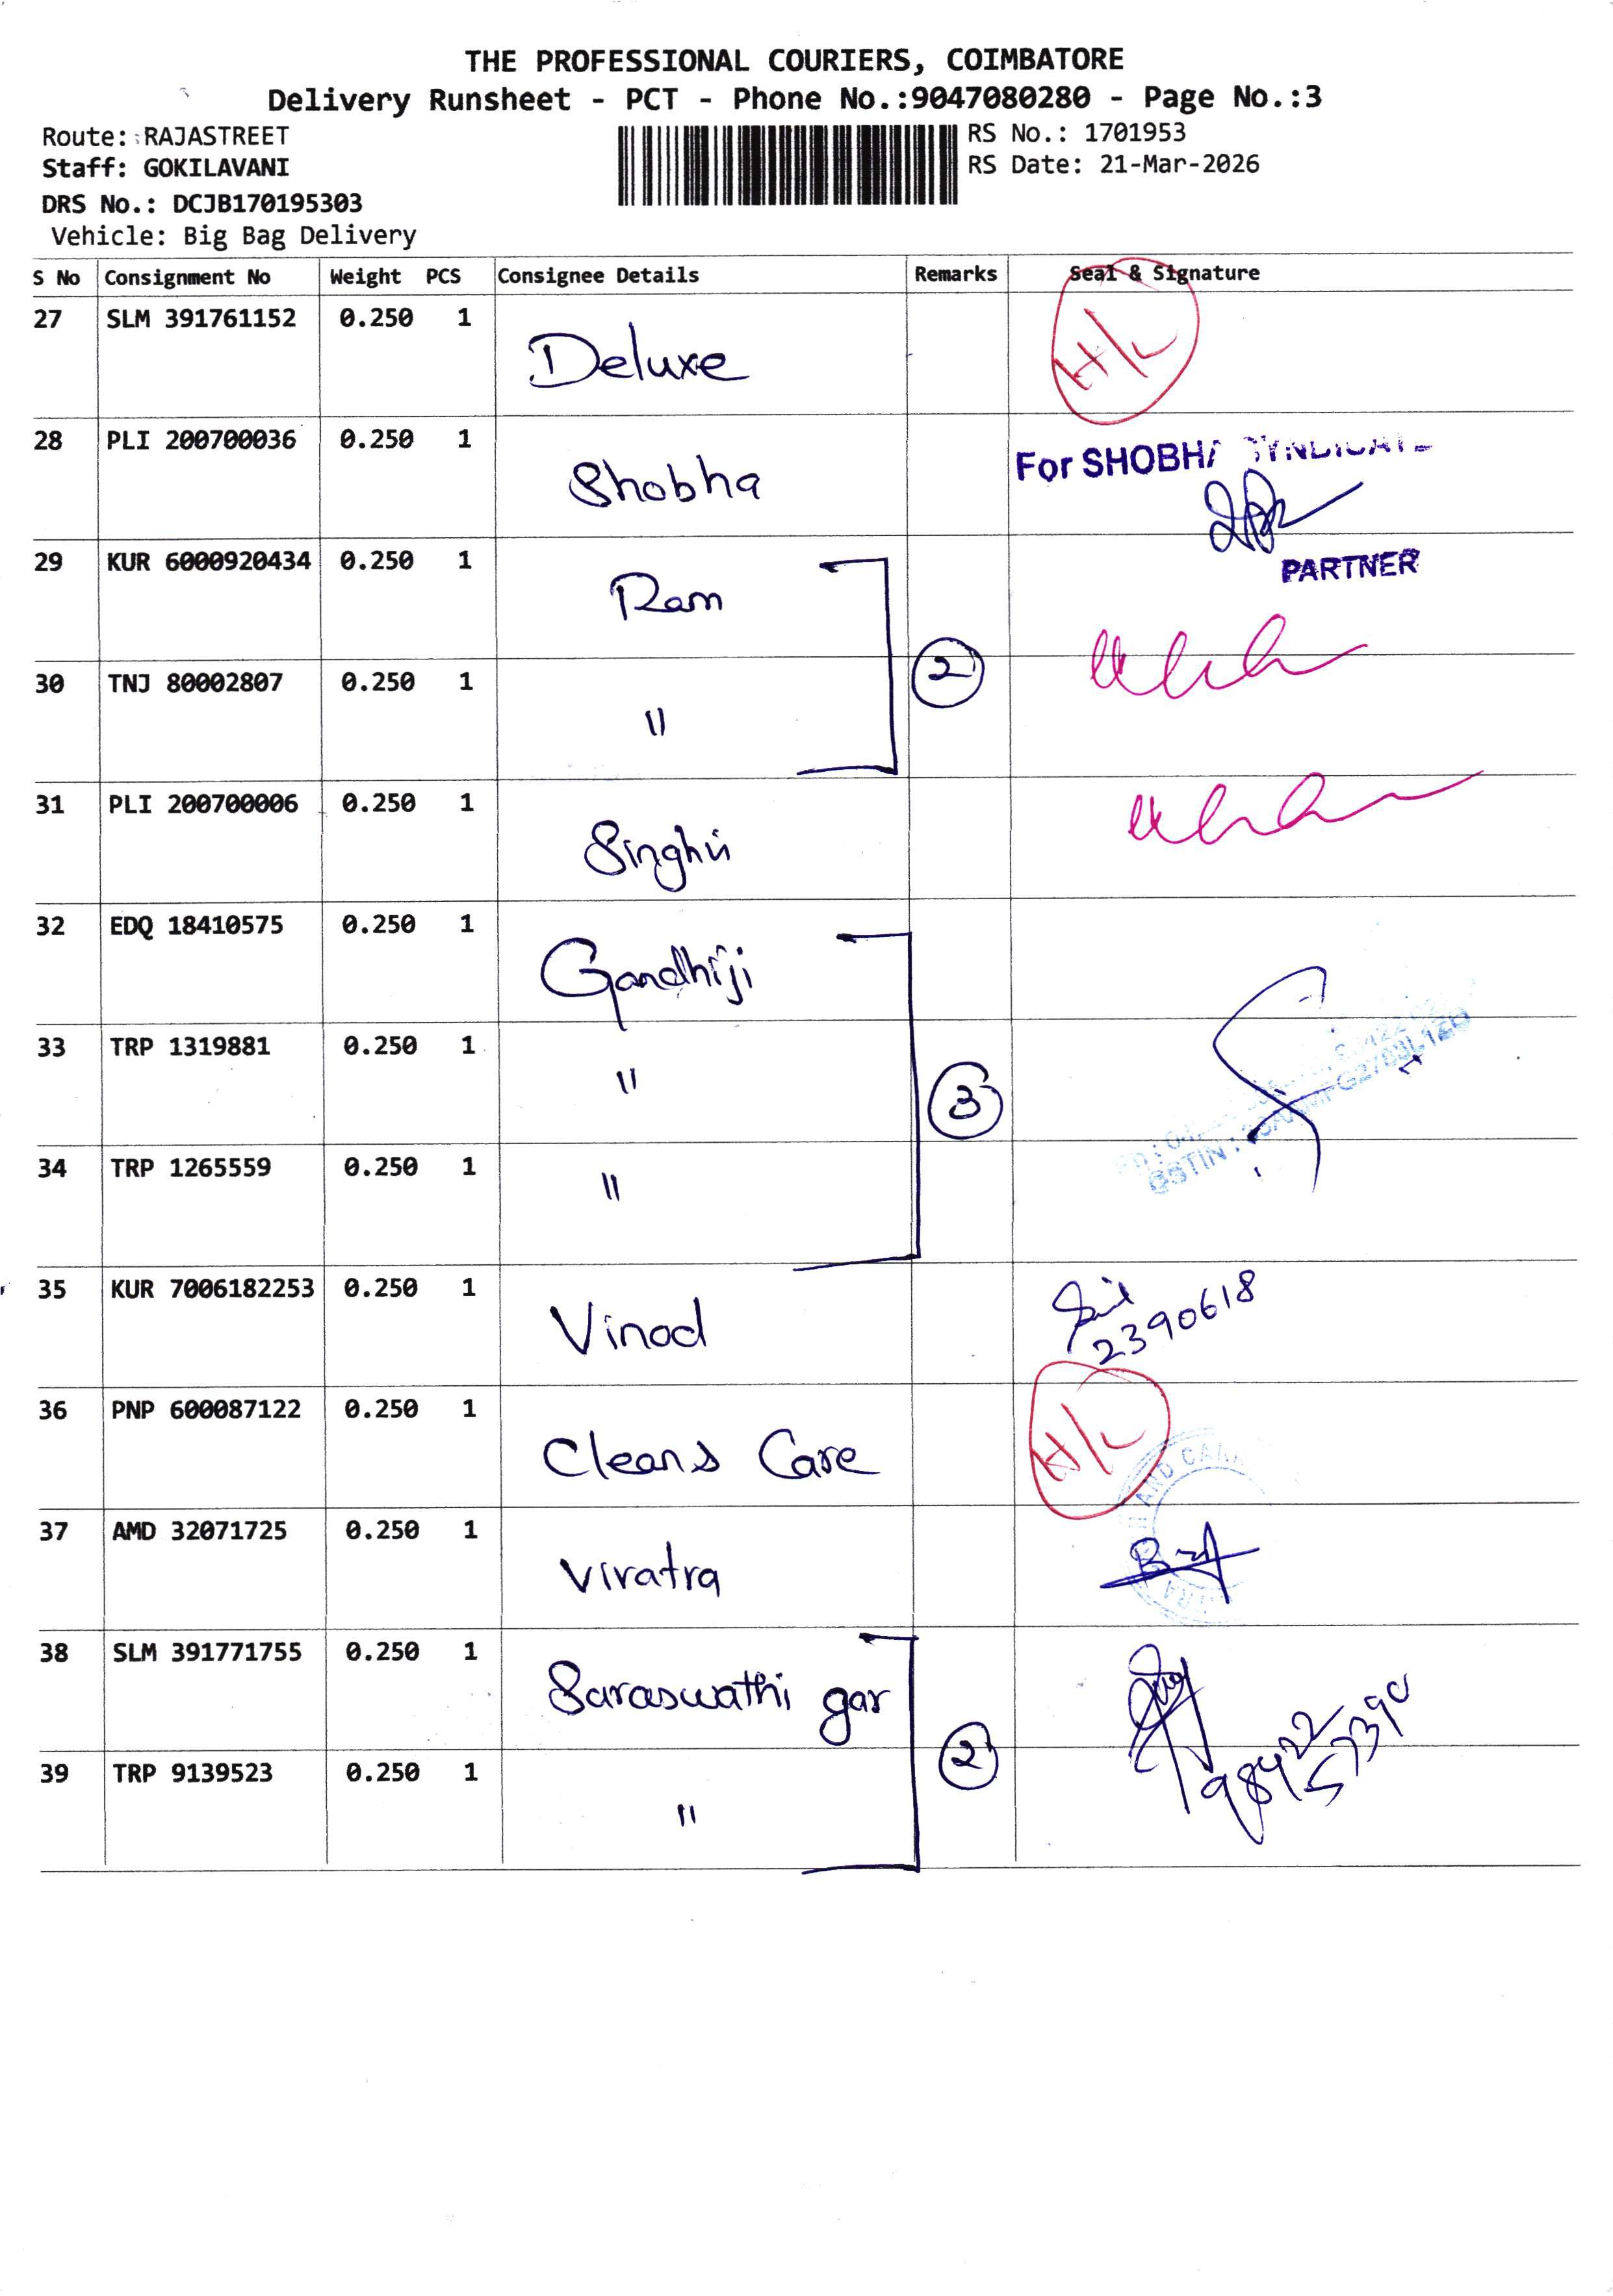 THE PROFESSIONAL COURIERS, COIMBATORE
Delivery Runsheet - PCT - Phone No.:9047080280 - Page No.:3
Route: RAJASTREET
RS No.: 1701953
Staff: GOKILAVANI
RS Date: 21-Mar-2026
DRS No.: DCJB170195303
Vehicle: Big Bag Delivery
S No Consignment No Weight PCS Consignee Details Remarks Seal & Signature
27 SLM 391761152 0.250 1 Deluxe H/L
28 PLI 200700036 0.250 1 Shobha For SHOBHA SYNDICATE
PARTNER
29 KUR 6000920434 0.250 1 Ram
2
30 TNJ 80002807 0.250 1 "
31 PLI 200700006 0.250 1 Singhvi
32 EDQ 18410575 0.250 1 Gandhiji
33 TRP 1319881 0.250 1 "
3
GSTIN :
34 TRP 1265559 0.250 1 "
35 KUR 7006182253 0.250 1 Vinod 2390618
36 PNP 600087122 0.250 1 Cleans Care H/L
AND
37 AMD 32071725 0.250 1 Viratra
38 SLM 391771755 0.250 1 Saraswathi gar
2
98422
57390
39 TRP 9139523 0.250 1 "